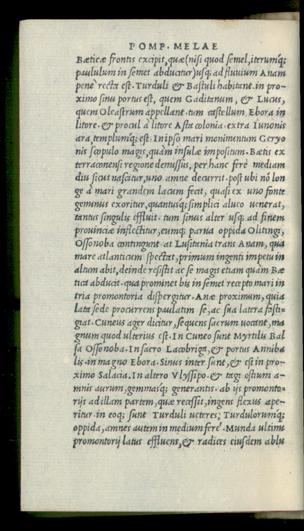 POMP. MELAE
Bæticæ frontis excipit, quæ (nisi quod semel, iterumq;
paululum in semet abducitur) usq; ad fluuium Anam
pene recta est. Turduli & Bastuli habitant. in pro-
ximo sinu portus est, quem Gaditanum, & Lucus,
quem Oleastrum appellant. tum castellum Ebora in
litore. & procul à litore Asta colonia. extra Iunonis
ara, templumq; est: In ipso mari monimentum Geryo
nis scopulo magis, quàm insulæ impositum. Bætis ex
terraconensi regione demissus, per hanc ferè mediam
diu sicut nascitur, uno amne decurrit. post ubi nõ lon
ge à mari grandem lacum fecit, quasi ex uno fonte
geminus exoritur, quantusq; simplici alueo uenerat,
tantus singulis effluit. tum sinus alter usq; ad finem
prouinciæ inflectitur, eumq; parua oppida Olitingi,
Ossonoba contingunt. at Lusitania trans Anam, qua
mare atlanticum spectat, primum ingenti impetu in
altum abit, deinde resistit ac se magis etiam quàm Bæ
tica abducit. qua prominet bis in semet recepto mari in
tria promontoria dispergitur. Anæ proximum, quia
lata sede procurrens paulatim se, ac sua latera fasti-
giat. Cuneus ager dicitur, sequens sacrum uocant, ma
gnum quod ulterius est. In Cuneo sunt Myrtilis Bal
sa Ossonoba. In sacro Lambriga, & portus Annibа
lis. in magno Ebora. Sinus inter sunt, & est in pro-
ximo Salacia. In altero Vlyssipo. & tagi ostium a-
mnis aurum, gemmasq; generantis. ab ijs promonto-
rijs ad illam partem, quæ recessit, ingens flexus ape-
ritur. in eoq; sunt Turduli ueteres: Turdulorumq;
oppida, amnes autem in medium ferè. Munda ultimi
promontorij latus effluens, & radices eiusdem ablu